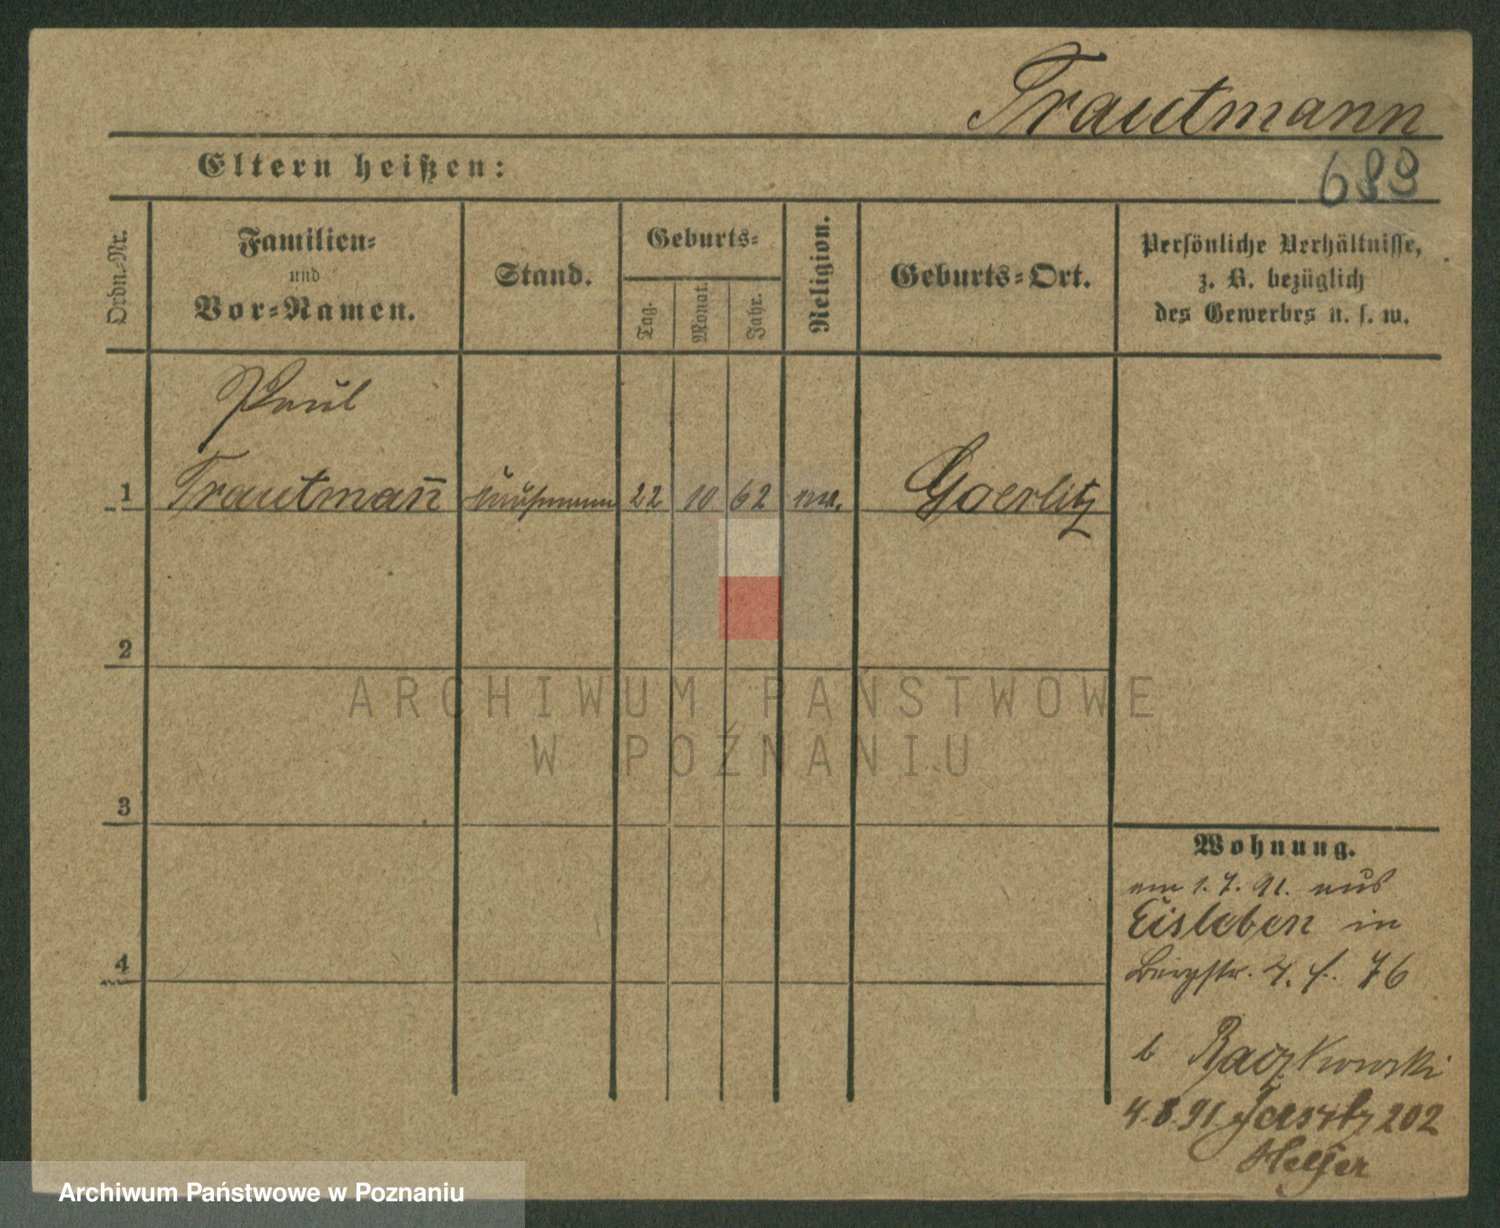 Trautmann
689
Eltern heißen:
Ordn.-Nr.
Familien-
und
Vor-Namen.
Stand.
Geburts-
Tag.
Monat.
Jahr.
Religion.
Geburts-Ort.
Persönliche Verhältnisse,
z. B. bezüglich
des Gewerbes u. s. w.
Paul
1 Trautmañ Kaufmann 22 10 62 ev. Goerlitz
2
ARCHIWUM PAŃSTWOWE
W POZNANIU
3
Wohnung.
am 1. 7. 91. aus
Eisleben in
Bergstr. 4. 76
4
b Raczkowski
4.8.91. Jersitz 202
Archiwum Państwowe w Poznaniu